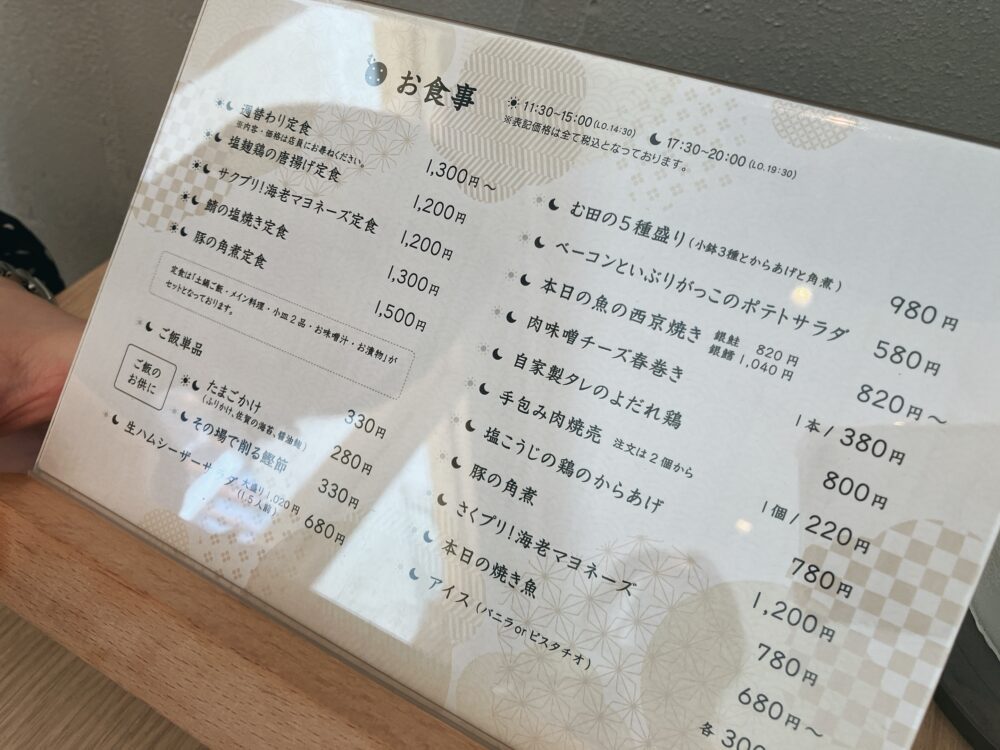 お食事
11:30~15:00 (LO.14:30) 17:30~20:00 (LO.19:30)
※表記価格は全て税込となっております。
週替わり定食 1,300円～
※内容・価格は店員にお尋ねください。
塩麹鶏の唐揚げ定食 1,200円
サクプリ!海老マヨネーズ定食 1,200円
鯖の塩焼き定食 1,300円
豚の角煮定食 1,500円
定食は「土鍋ご飯・メイン料理・小皿2品・お味噌汁・お漬物」が
セットとなっております。
ご飯単品 330円
ご飯の
お供に
たまごかけ 280円
(ふりかけ、佐賀の海苔、醤油麹)
その場で削る鰹節 330円
生ハムシーザーサラダ 680円
大盛り 1,020円
(1.5人前)
む田の5種盛り (小鉢3種とからあげと角煮) 980円
ベーコンといぶりがっこのポテトサラダ 580円
本日の魚の西京焼き 銀鮭 820円 820円～
銀鱈 1,040円
肉味噌チーズ春巻き 1本/380円
自家製タレのよだれ鶏 800円
手包み肉焼売 注文は2個から 1個/220円
塩こうじの鶏のからあげ 780円
豚の角煮 1,200円
さくプリ!海老マヨネーズ 780円
本日の焼き魚 680円～
アイス (バニラorピスタチオ) 各300